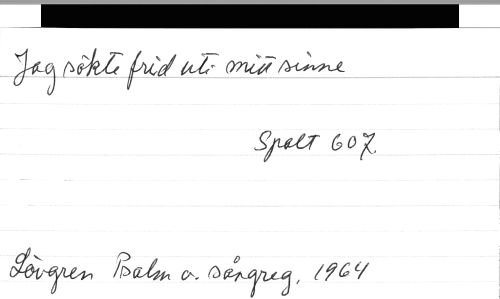 Jag sökte frid uti mitt sinne
Spalt 607.
Lövgren Psalm o. sångreg. 1964